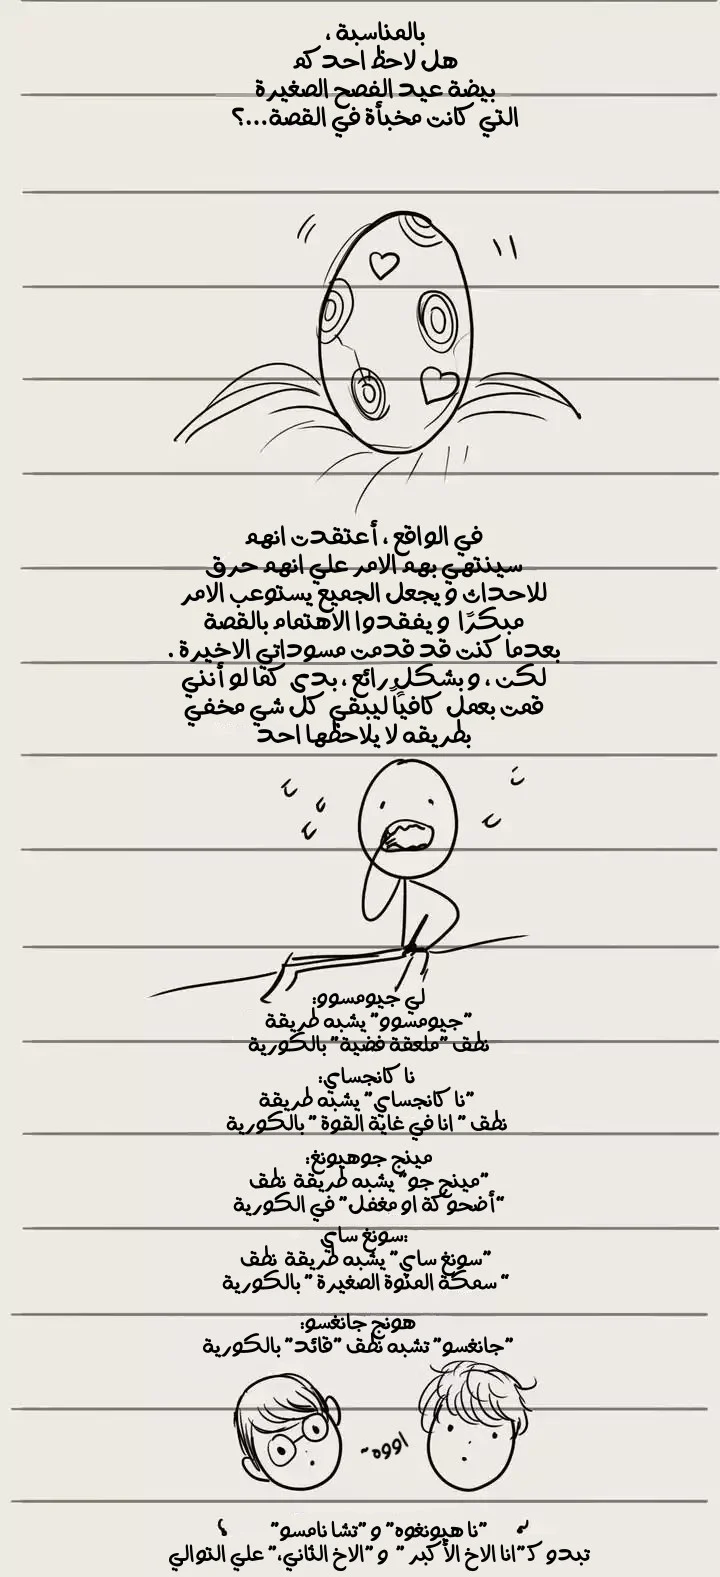 بالمناسبة ،
هل لاحظ احدكم
بيضة عيد الفصح الصغيرة
التي كانت مخبأة في القصة...؟
في الواقع ، أعتقدت انهم
سينتهي بهم الامر علي انهم حرق
للاحداث ويجعل الجميع يستوعب الامر
مبكرًا ويفقدوا الاهتمام بالقصة
بعدما كنت قد قدمت مسوداتي الاخيرة .
لكن ، وبشكل رائع ، بدى كما لو أنني
قمت بعمل كافيًا ليبقي كل شي مخفي
بطريقه لا يلاحظها احد
لي جيومسوو:
"جيومسوو" يشبه طريقة
نطق "ملعقة فضية" بالكورية
نا كانجساي:
"نا كانجساي" يشبه طريقة
نطق " انا في غاية القوة " بالكورية
مينج جوهيونغ:
"مينج جو" يشبه طريقة نطق
"أضحوكة او مغفل" في الكورية
:سونغ ساي
"سونغ ساي" يشبه طريقة نطق
" سمكة المنوة الصغيرة " بالكورية
هونج جانغسو:
"جانغسو" تشبه نطق "قائد" بالكورية
اووه~
"نا هيونغوه" و "تشا نامسو"
تبدو كـ"انا الاخ الأكبر " و "الاخ الثاني،" علي التوالي